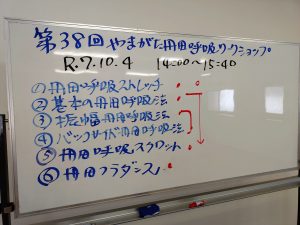 第38回やまがた丹田呼吸ワークショップ
R.7.10.4 14:00~15:40
①丹田呼吸ストレッチ
②基本の丹田呼吸法
③振幅丹田呼吸法
④バックサイド丹田呼吸法
⑤丹田呼吸スクワット
⑥丹田フラダンス